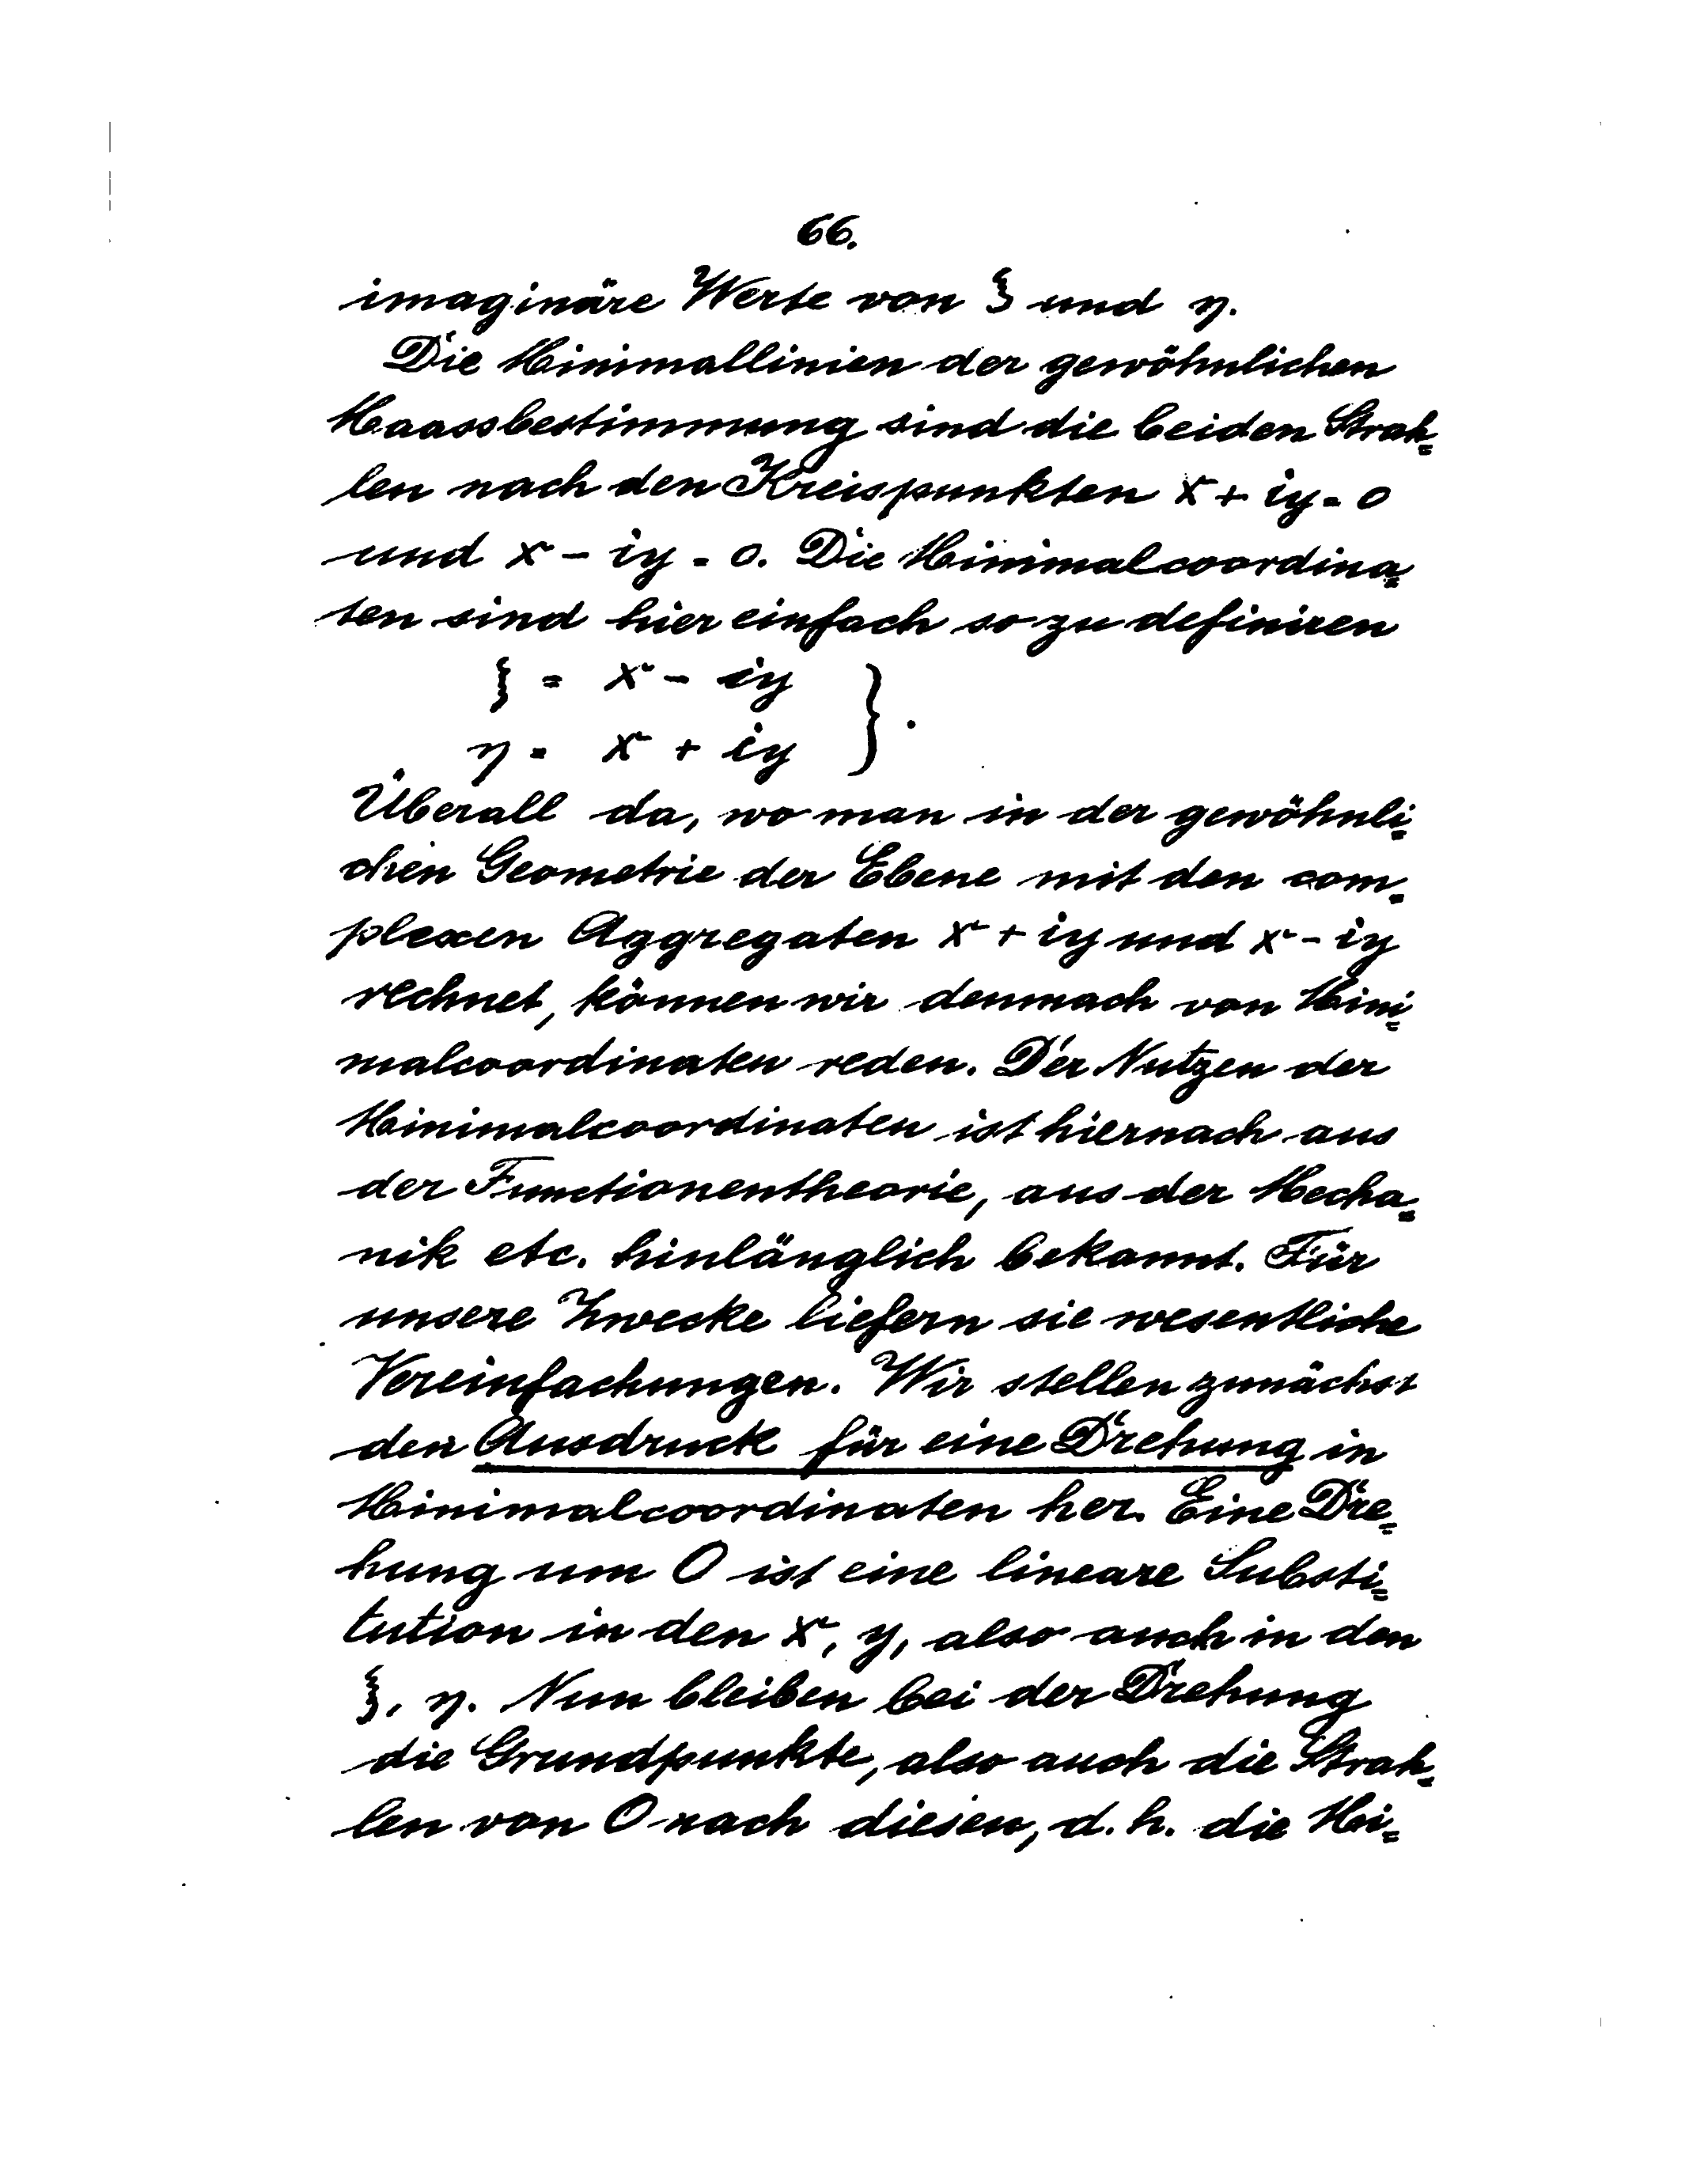 66.
imaginäre Werte von ξ und η.
Die Minimallinien der gewöhnlichen
Maassbestimmung sind die beiden Strah=
len nach den Kreispunkten x + iy = 0
und x - iy = 0. Die Minimalcoordina=
ten sind hier einfach so zu definiren
ξ = x - iy
η = x + iy } .
Überall da, wo man in der gewöhnli=
chen Geometrie der Ebene mit den com=
plexen Aggregaten x + iy und x - iy
rechnet, können wir demnach von Mini=
malcoordinaten reden. Der Nutzen der
Minimalcoordinaten ist hiernach aus
der Functionentheorie, aus der Mecha=
nik etc. hinlänglich bekannt. Für
unsere Zwecke liefern sie wesentliche
Vereinfachungen. Wir stellen zunächst
den Ausdruck für eine Drehung in
Minimalcoordinaten her. Eine Dre=
hung um O ist eine lineare Substi=
tution in den x, y, also auch in den
ξ, η. Nun bleiben bei der Drehung
die Grundpunkte, also auch die Strah=
len von O nach diesen, d. h. die Mi=